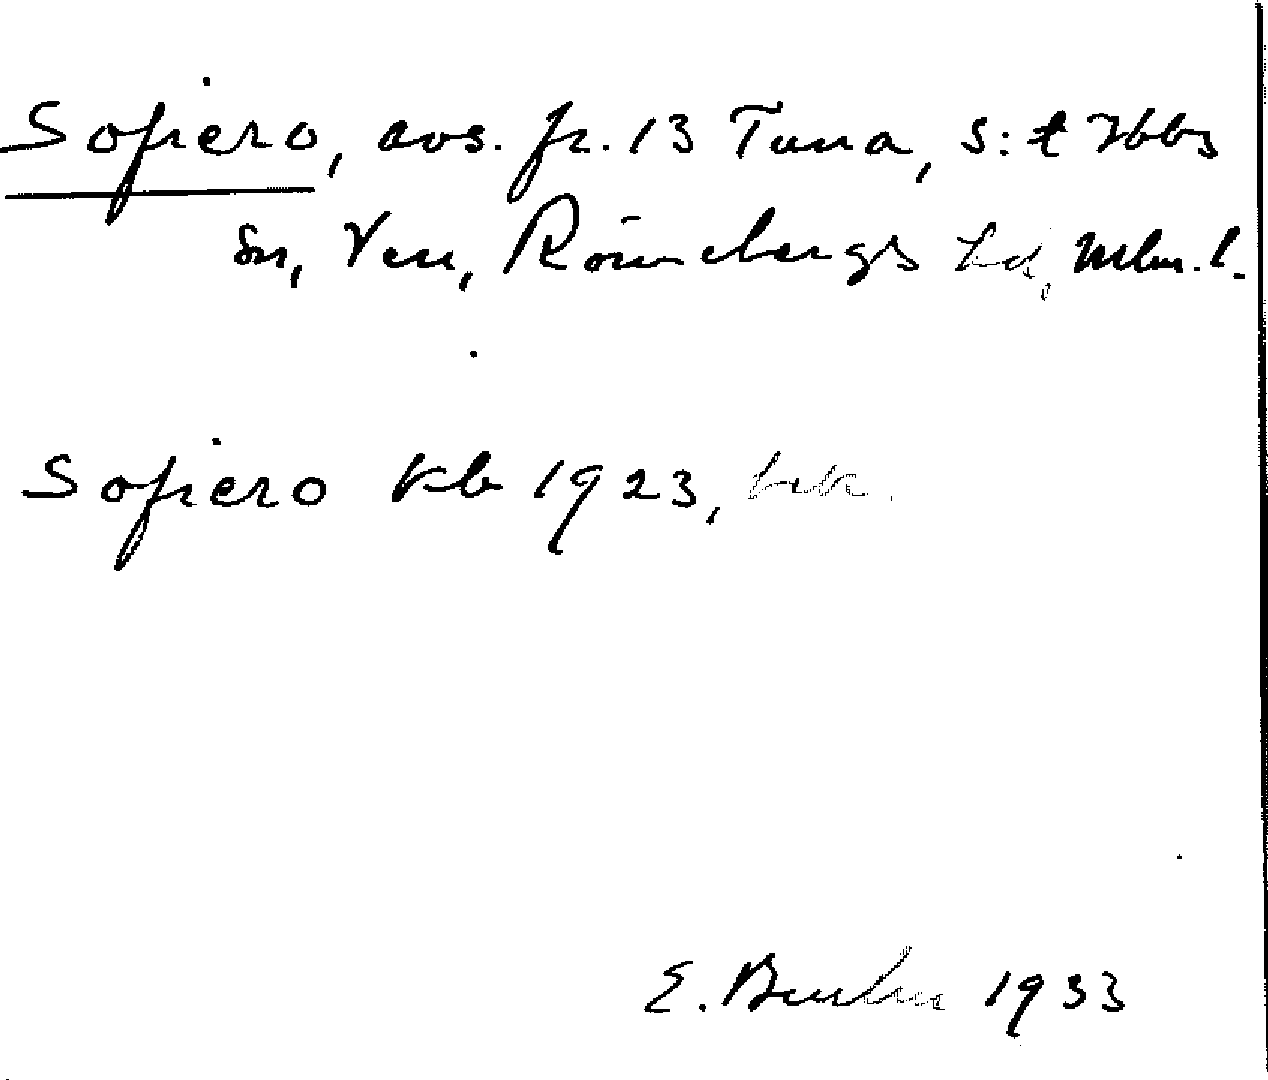 Sofiero, avs. fr. 13 Tuna, S:t Ibbs
sn, Ven, Rönnebergs hd, Mlm. l.
Sofiero kb 1923,
E. 1933